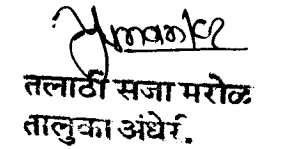 तलाठी सजा मरोळ
तालुका अंधेरी.